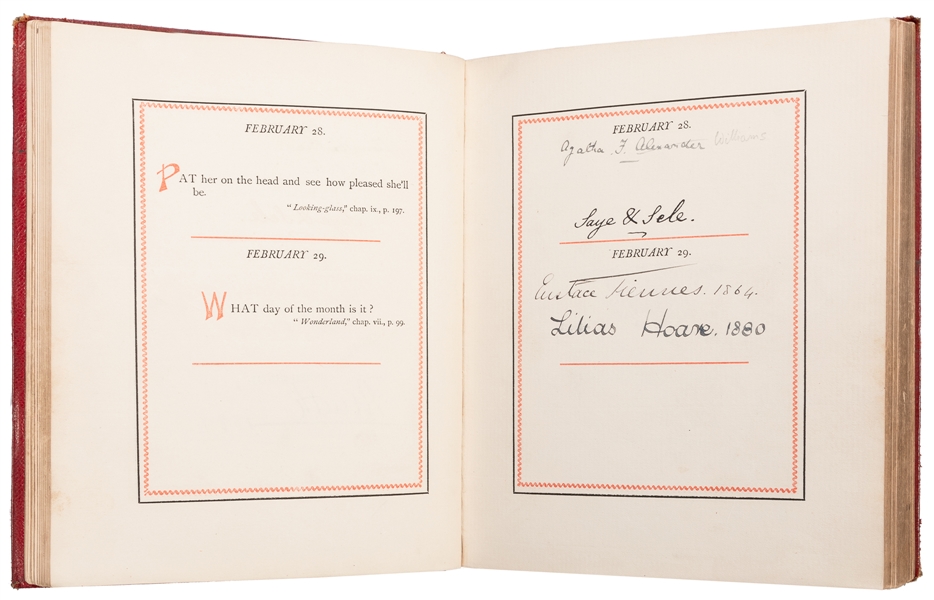 FEBRUARY 28.
PAT her on the head and see how pleased she'll
be.
"Looking-glass," chap. ix., p. 197.
FEBRUARY 29.
WHAT day of the month is it ?
"Wonderland," chap. vii., p. 99.
FEBRUARY 28.
Agatha F. Alexander Williams
Saye & Sele.
FEBRUARY 29.
Eustace Fiennes. 1864.
Lilias Hoare. 1880